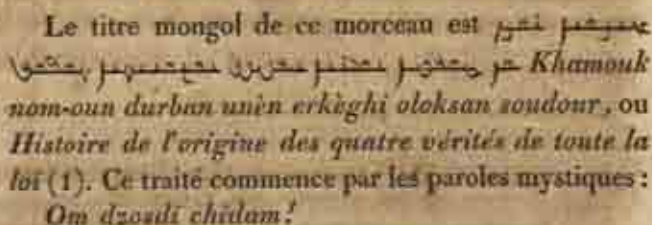 Le titre mongol de ce morceau est
Khamouk
nom-oun durban unèn erkèghi oloksan soudour, ou
Histoire de l'origine des quatre vérités de toute la
loi (1). Ce traité commence par les paroles mystiques :
Om dzosdi chidam!